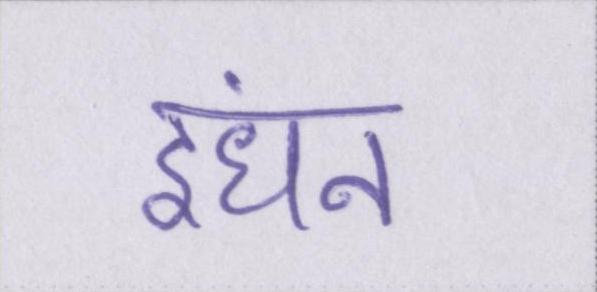 इंधन